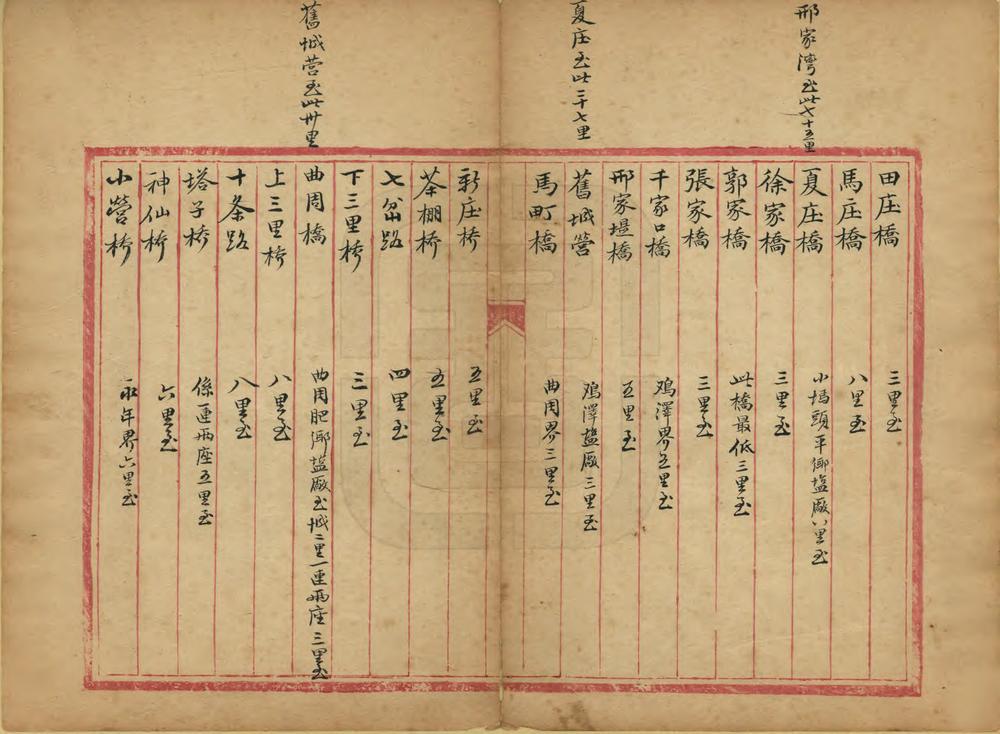 邢家灣至此七十五里
夏庄至此三十七里
舊城營至此卅里
田庄橋 三里至
馬庄橋 八里至
夏庄橋 小塢頭平鄉塩廠八里至
徐家橋 三里至
郭家橋 此橋最低三里至
張家橋 三里至
千家口橋 鸡澤界五里至
邢家堤橋 五里至
舊城營 鸡澤塩廠三里至
馬町橋 曲周界三里至
新庄桥 五里至
茶棚桥 五里至
七岔路 四里至
下三里桥 三里至
曲周橋 曲周肥鄉塩廠至城二里一連兩座三里至
上三里桥 八里至
十条路 八里至
塔子桥 係連兩座五里至
神仙桥 六里至
小營桥 永年界六里至